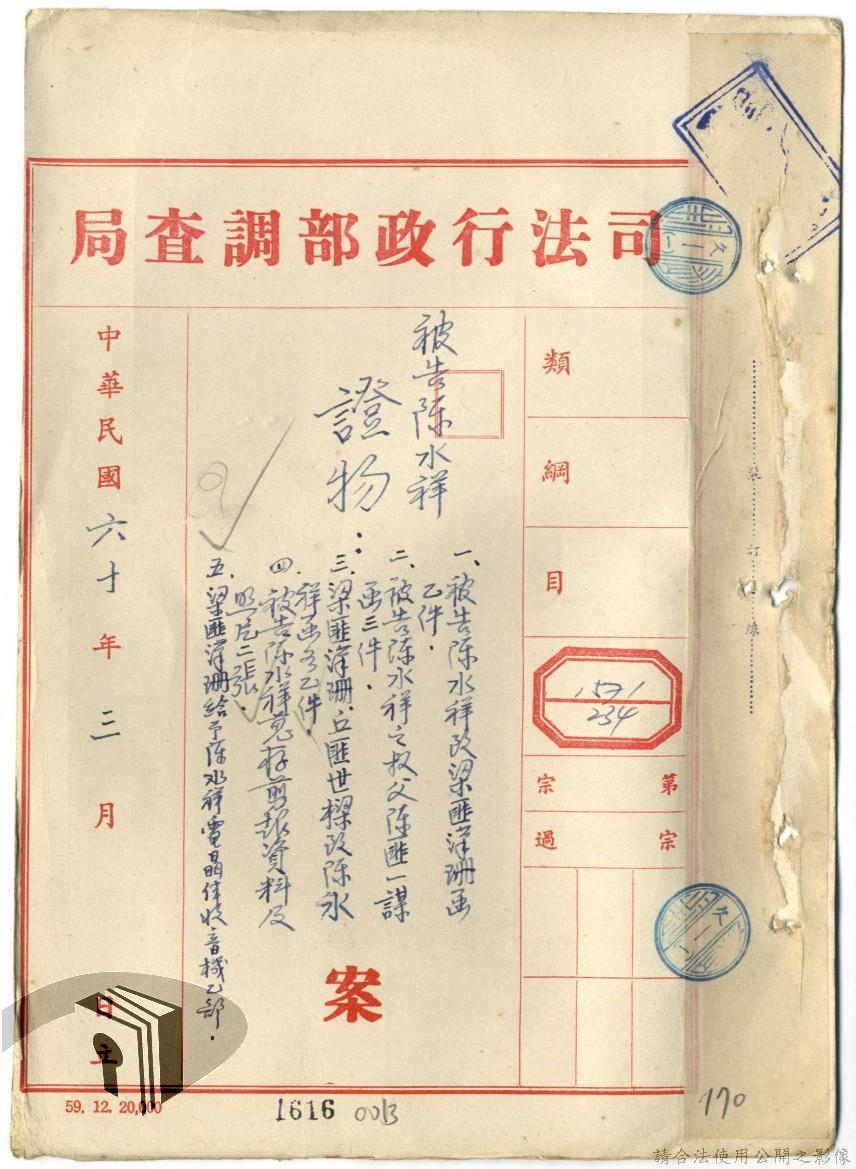 司法行政部調查局
類
綱
目
1571
234
第宗
宗過
被告陳水祥
證物：
一、被告陳水祥致梁匪漢珊函
乙件．
二、被告陳水祥之叔父陳匪一謀
函三件．
三、梁匪漢珊．丘匪世樑致陳水
祥函各乙件．
四、被告陳水祥蒐存剪報資料及
照片二張．
五、梁匪漢珊給予陳水祥電晶体收音機乙部．
案
中華民國六十年三月
日立
裝訂線
59. 12. 20,000
1616
0013
170
請合法使用公開之影像